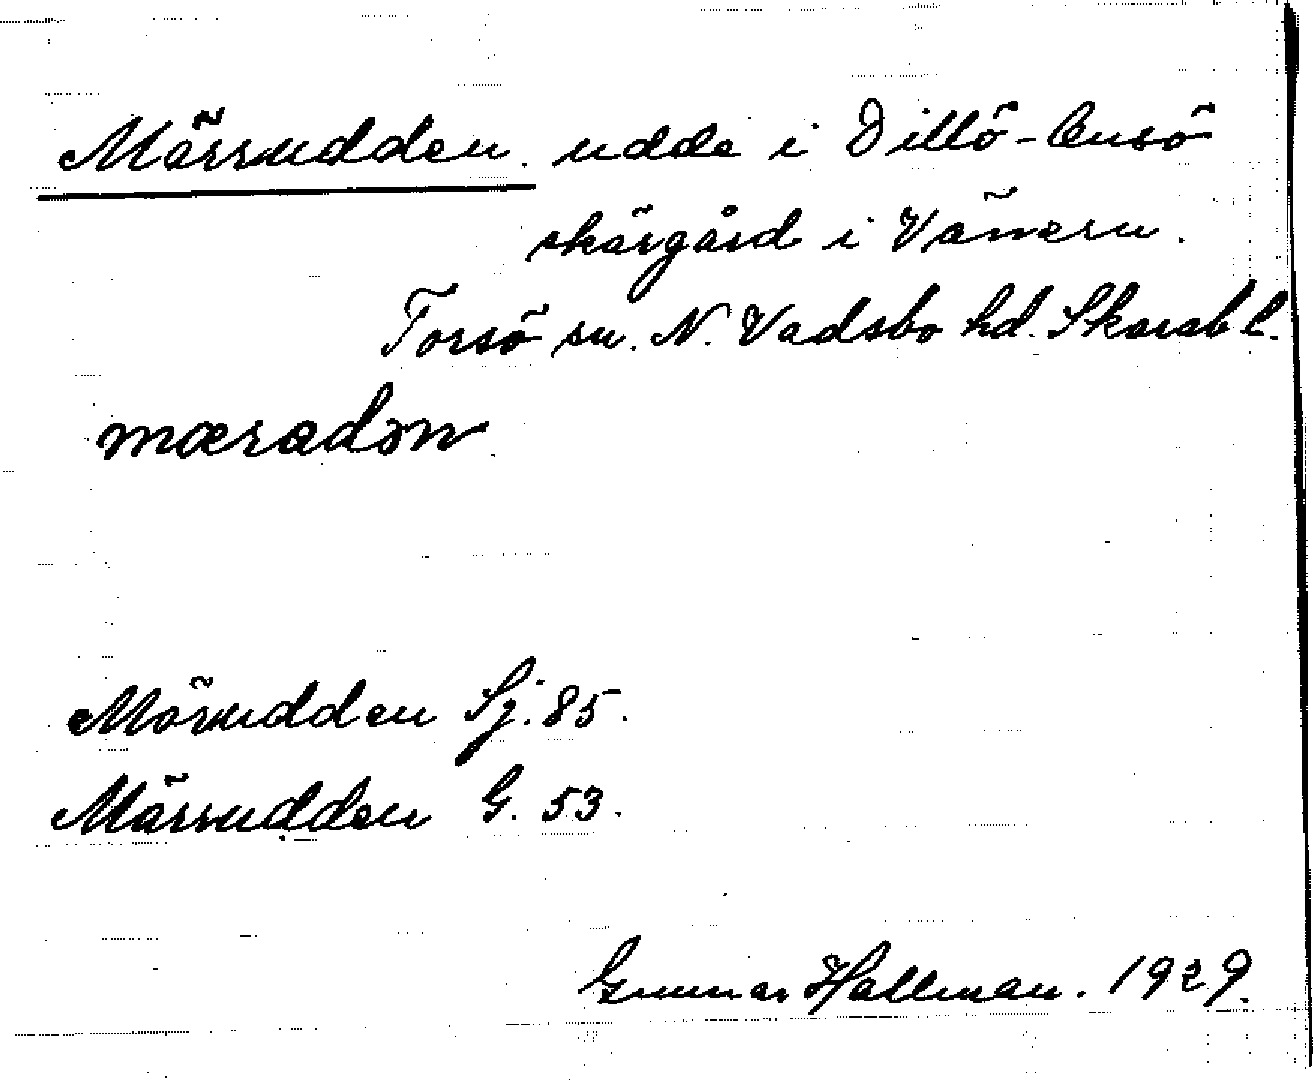 Märrudden. udde i Dillö-Onsö
skärgård i Vänern.
Torsö sn. N. Vadsbo hd. Skarab l.
mærɑdən
Mörudden Sj. 85.
Märrudden G. 53.
Gunnar Hallman. 1929.